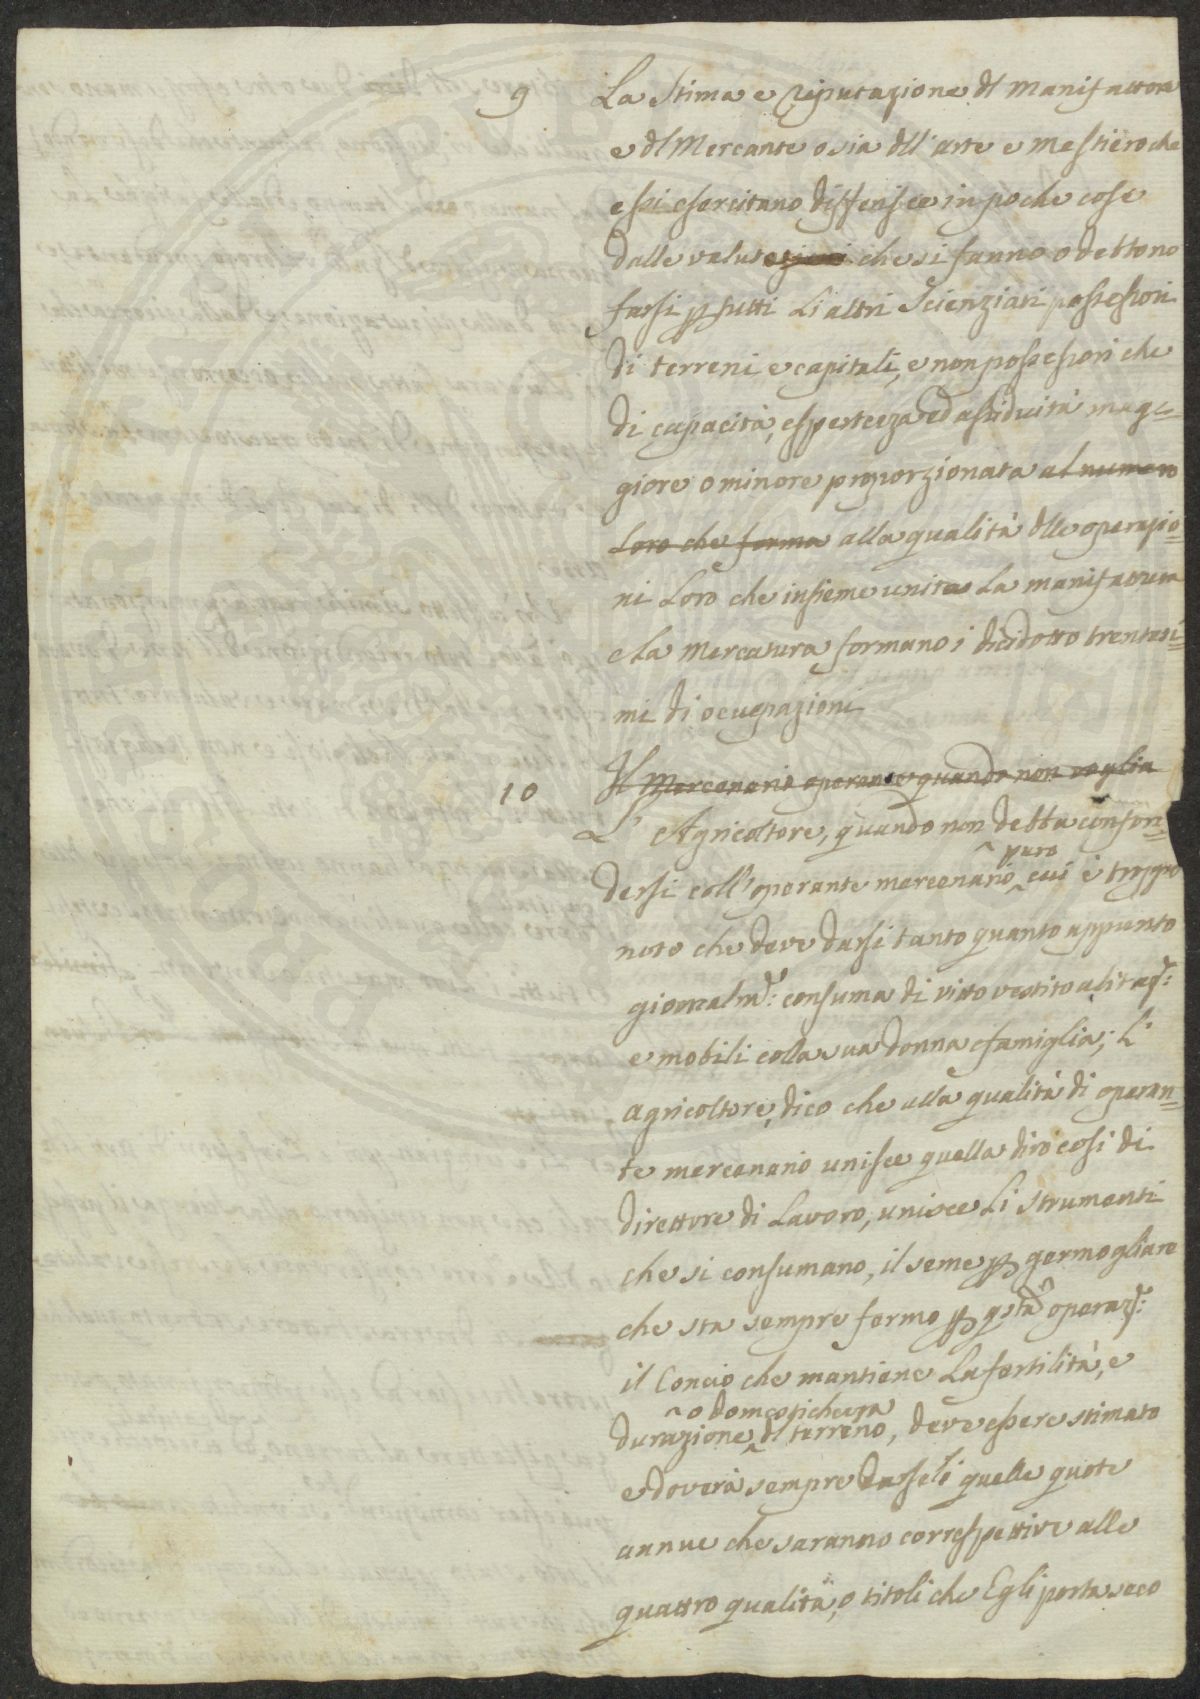 9 La Stima e riputazione dl Manifattore
e dl Mercante o sia dll'arte e mestiero che
essi esercitano differisce in poche cose
dalle valutazioni che si fanno o debbono
farsi p tutti Li altri Scienziati possessori
di terreni e capitali, e non possessori che
di capacità, esperteeza ed assiduità mag=
giore o minore proporzionata al numero
Loro che forma alla qualità dlle operazio=
ni Loro che insieme unite La manifattura
e La Mercatura formano i dicidotto trentesi=
mi di ocupazioni
10 Il Mercenario operante quando non voglia
L'Agricoltore, quando non debba confon=
puro
dersi coll'operante mercenario, cui è troppo
noto che deve darsi tanto quanto appunto
giornalm:e consuma di vitto vestito
e mobili colla sua donna e famiglia; L'
agricoltore, dico che alla qualità di operan=
te mercenario unisce quella dirò così di
direttore di Lavoro, unisce Li strumenti
che si consumano, il seme p germogliare
che sta sempre fermo p qsta operaz:
il Concio che mantiene La fertilità, e
durazione dl terreno, deve essere stimato
e doverà sempre darseli quelle quote
annue che saranno correspettive alle
quattro qualità, o titoli che Egli porta seco